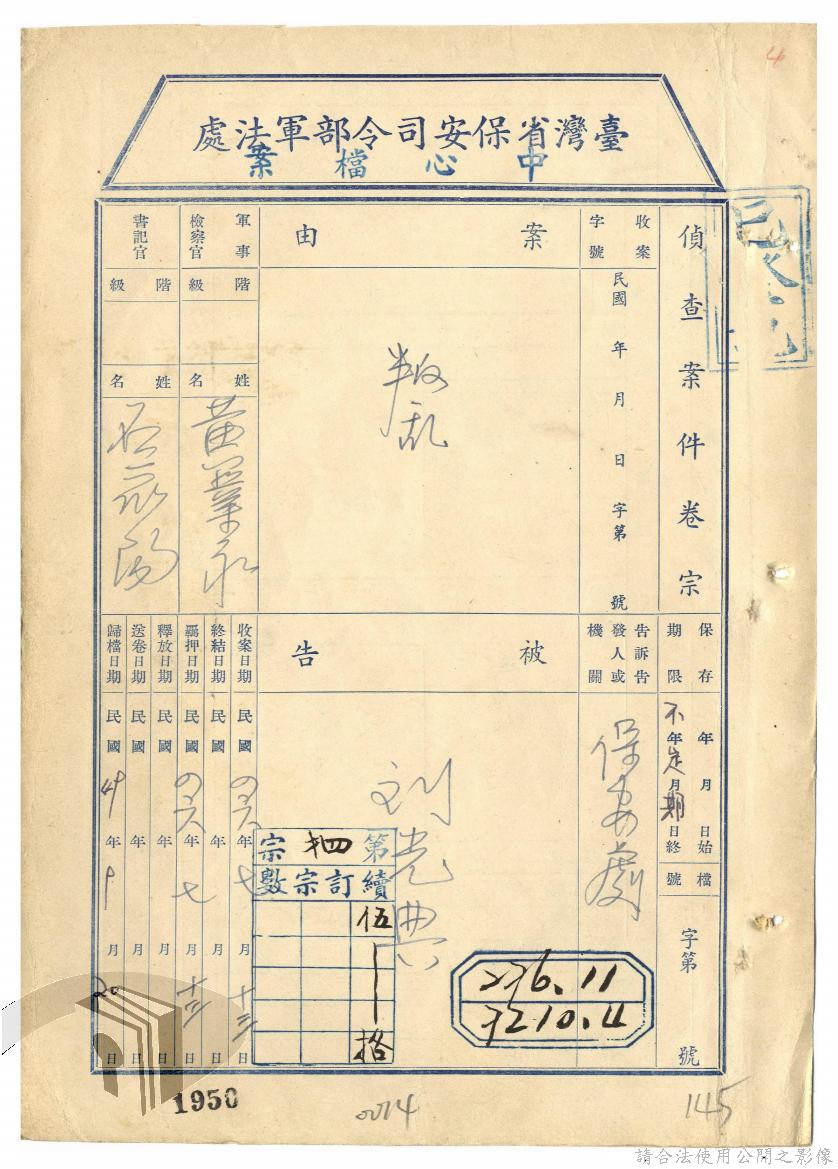 4
臺灣省保安司令部軍法處
中心檔案
偵查案件卷宗
收案字號
民國 年 月 日 字第 號
案由
叛乱
軍事檢察官
階級
姓名
黃業永
書記官
階級
姓名
保存期限
年 月 日始
不定期
年 月 日終
檔號
字第 號
告訴告發人或機關
保安處
被告
劉光典
收案日期 民國 四六 年 七 月 十三 日
終結日期 民國 年 月 日
羈押日期 民國 四六 年 七 月 十三 日
釋放日期 民國 年 月 日
送卷日期 民國 年 月 日
歸檔日期 民國 49 年 9 月 20 日
第 肆 宗
續訂宗數
伍
拾
276.11
7210.4
1950
0014
145
請合法使用公開之影像